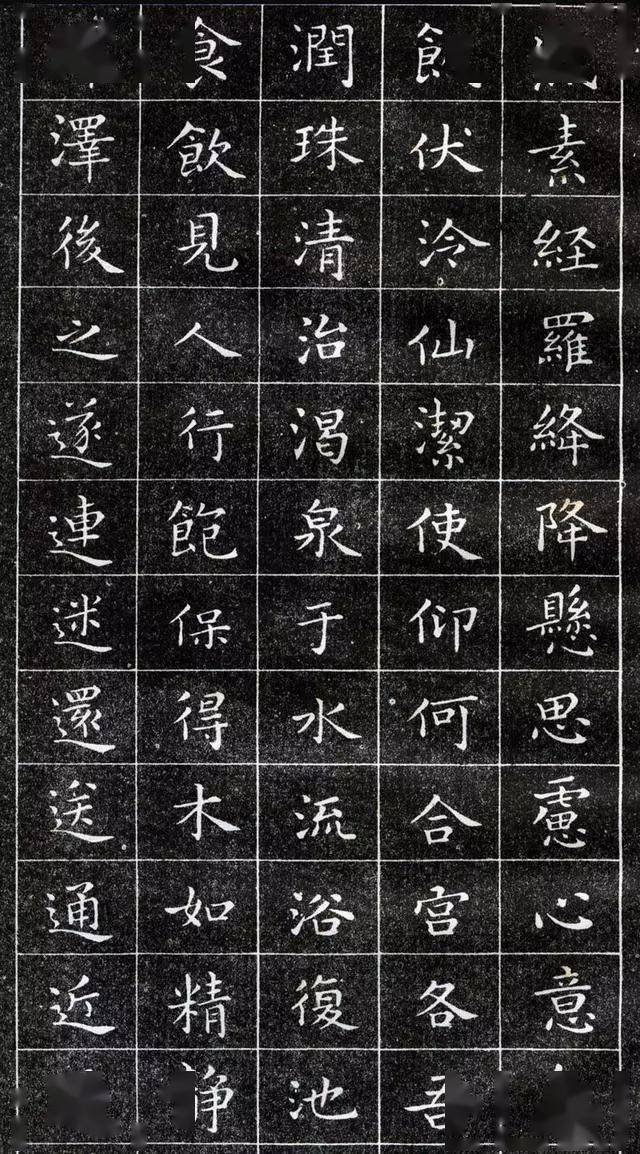 素経羅絳降懸思慮心意
伏泠仙潔使仰何合宮各
潤珠清治渴泉于水流浴復池
食飲見人行飽保得木如精
澤後之遂連迷還送通近